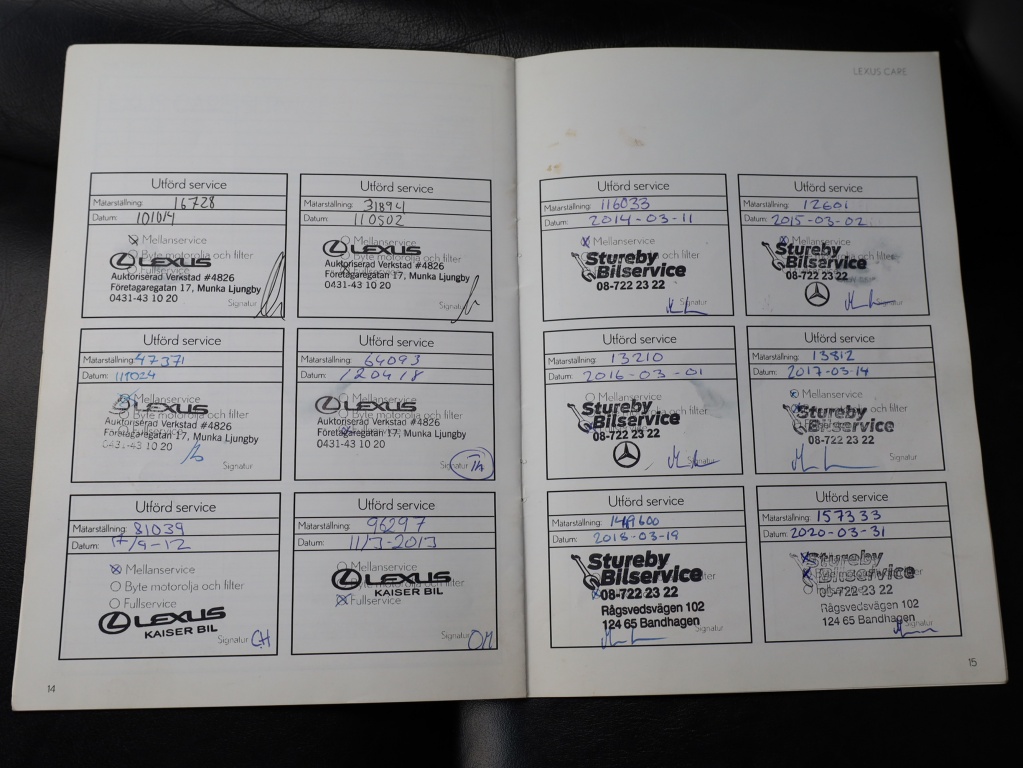 LEXUS CARE
Utförd service
Mätarställning: 16728
Datum: 101014
Mellanservice
Byte motorolja och filter
Fullservice
LEXUS
Auktoriserad Verkstad #4826
Företagaregatan 17, Munka Ljungby
0431-43 10 20
Signatur
Utförd service
Mätarställning: 31894
Datum: 110502
Mellanservice
Byte motorolja och filter
Fullservice
LEXUS
Auktoriserad Verkstad #4826
Företagaregatan 17, Munka Ljungby
0431-43 10 20
Signatur
Utförd service
Mätarställning: 47371
Datum: 111024
Mellanservice
Byte motorolja och filter
LEXUS
Auktoriserad Verkstad #4826
Företagaregatan 17, Munka Ljungby
0431-43 10 20
Signatur
Utförd service
Mätarställning: 64093
Datum: 120418
Mellanservice
Byte motorolja och filter
LEXUS
Auktoriserad Verkstad #4826
Företagaregatan 17, Munka Ljungby
0431-43 10 20
Signatur TA
Utförd service
Mätarställning: 81039
Datum: 17/9-12
Mellanservice
Byte motorolja och filter
Fullservice
LEXUS
KAISER BIL
Signatur CH
Utförd service
Mätarställning: 96297
Datum: 11/3-2013
Mellanservice
Byte motorolja och filter
Fullservice
LEXUS
KAISER BIL
Signatur OM
14
Utförd service
Mätarställning: 116033
Datum: 2014-03-11
Mellanservice
Stureby
Bilservice
08-722 23 22
Signatur
Utförd service
Mätarställning: 12601
Datum: 2015-03-02
Mellanservice
Stureby
Bilservice
08-722 23 22
Signatur
Utförd service
Mätarställning: 13210
Datum: 2016-03-01
Mellanservice
Stureby
Bilservice
08-722 23 22
Signatur
Utförd service
Mätarställning: 13812
Datum: 2017-03-14
Mellanservice
Stureby
Bilservice
08-722 23 22
Signatur
Utförd service
Mätarställning: 149600
Datum: 2018-03-19
Stureby
Bilservice
08-722 23 22
Rågsvedsvägen 102
124 65 Bandhagen
Signatur
Utförd service
Mätarställning: 157333
Datum: 2020-03-31
Stureby
Bilservice
08-722 23 22
Rågsvedsvägen 102
124 65 Bandhagen
Signatur
15